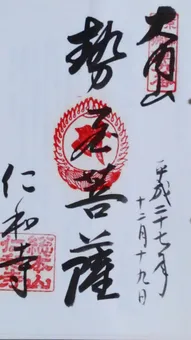 大内山
勢至菩薩
仁和寺
平成二十七年
十二月十九日
総本山
仁和寺